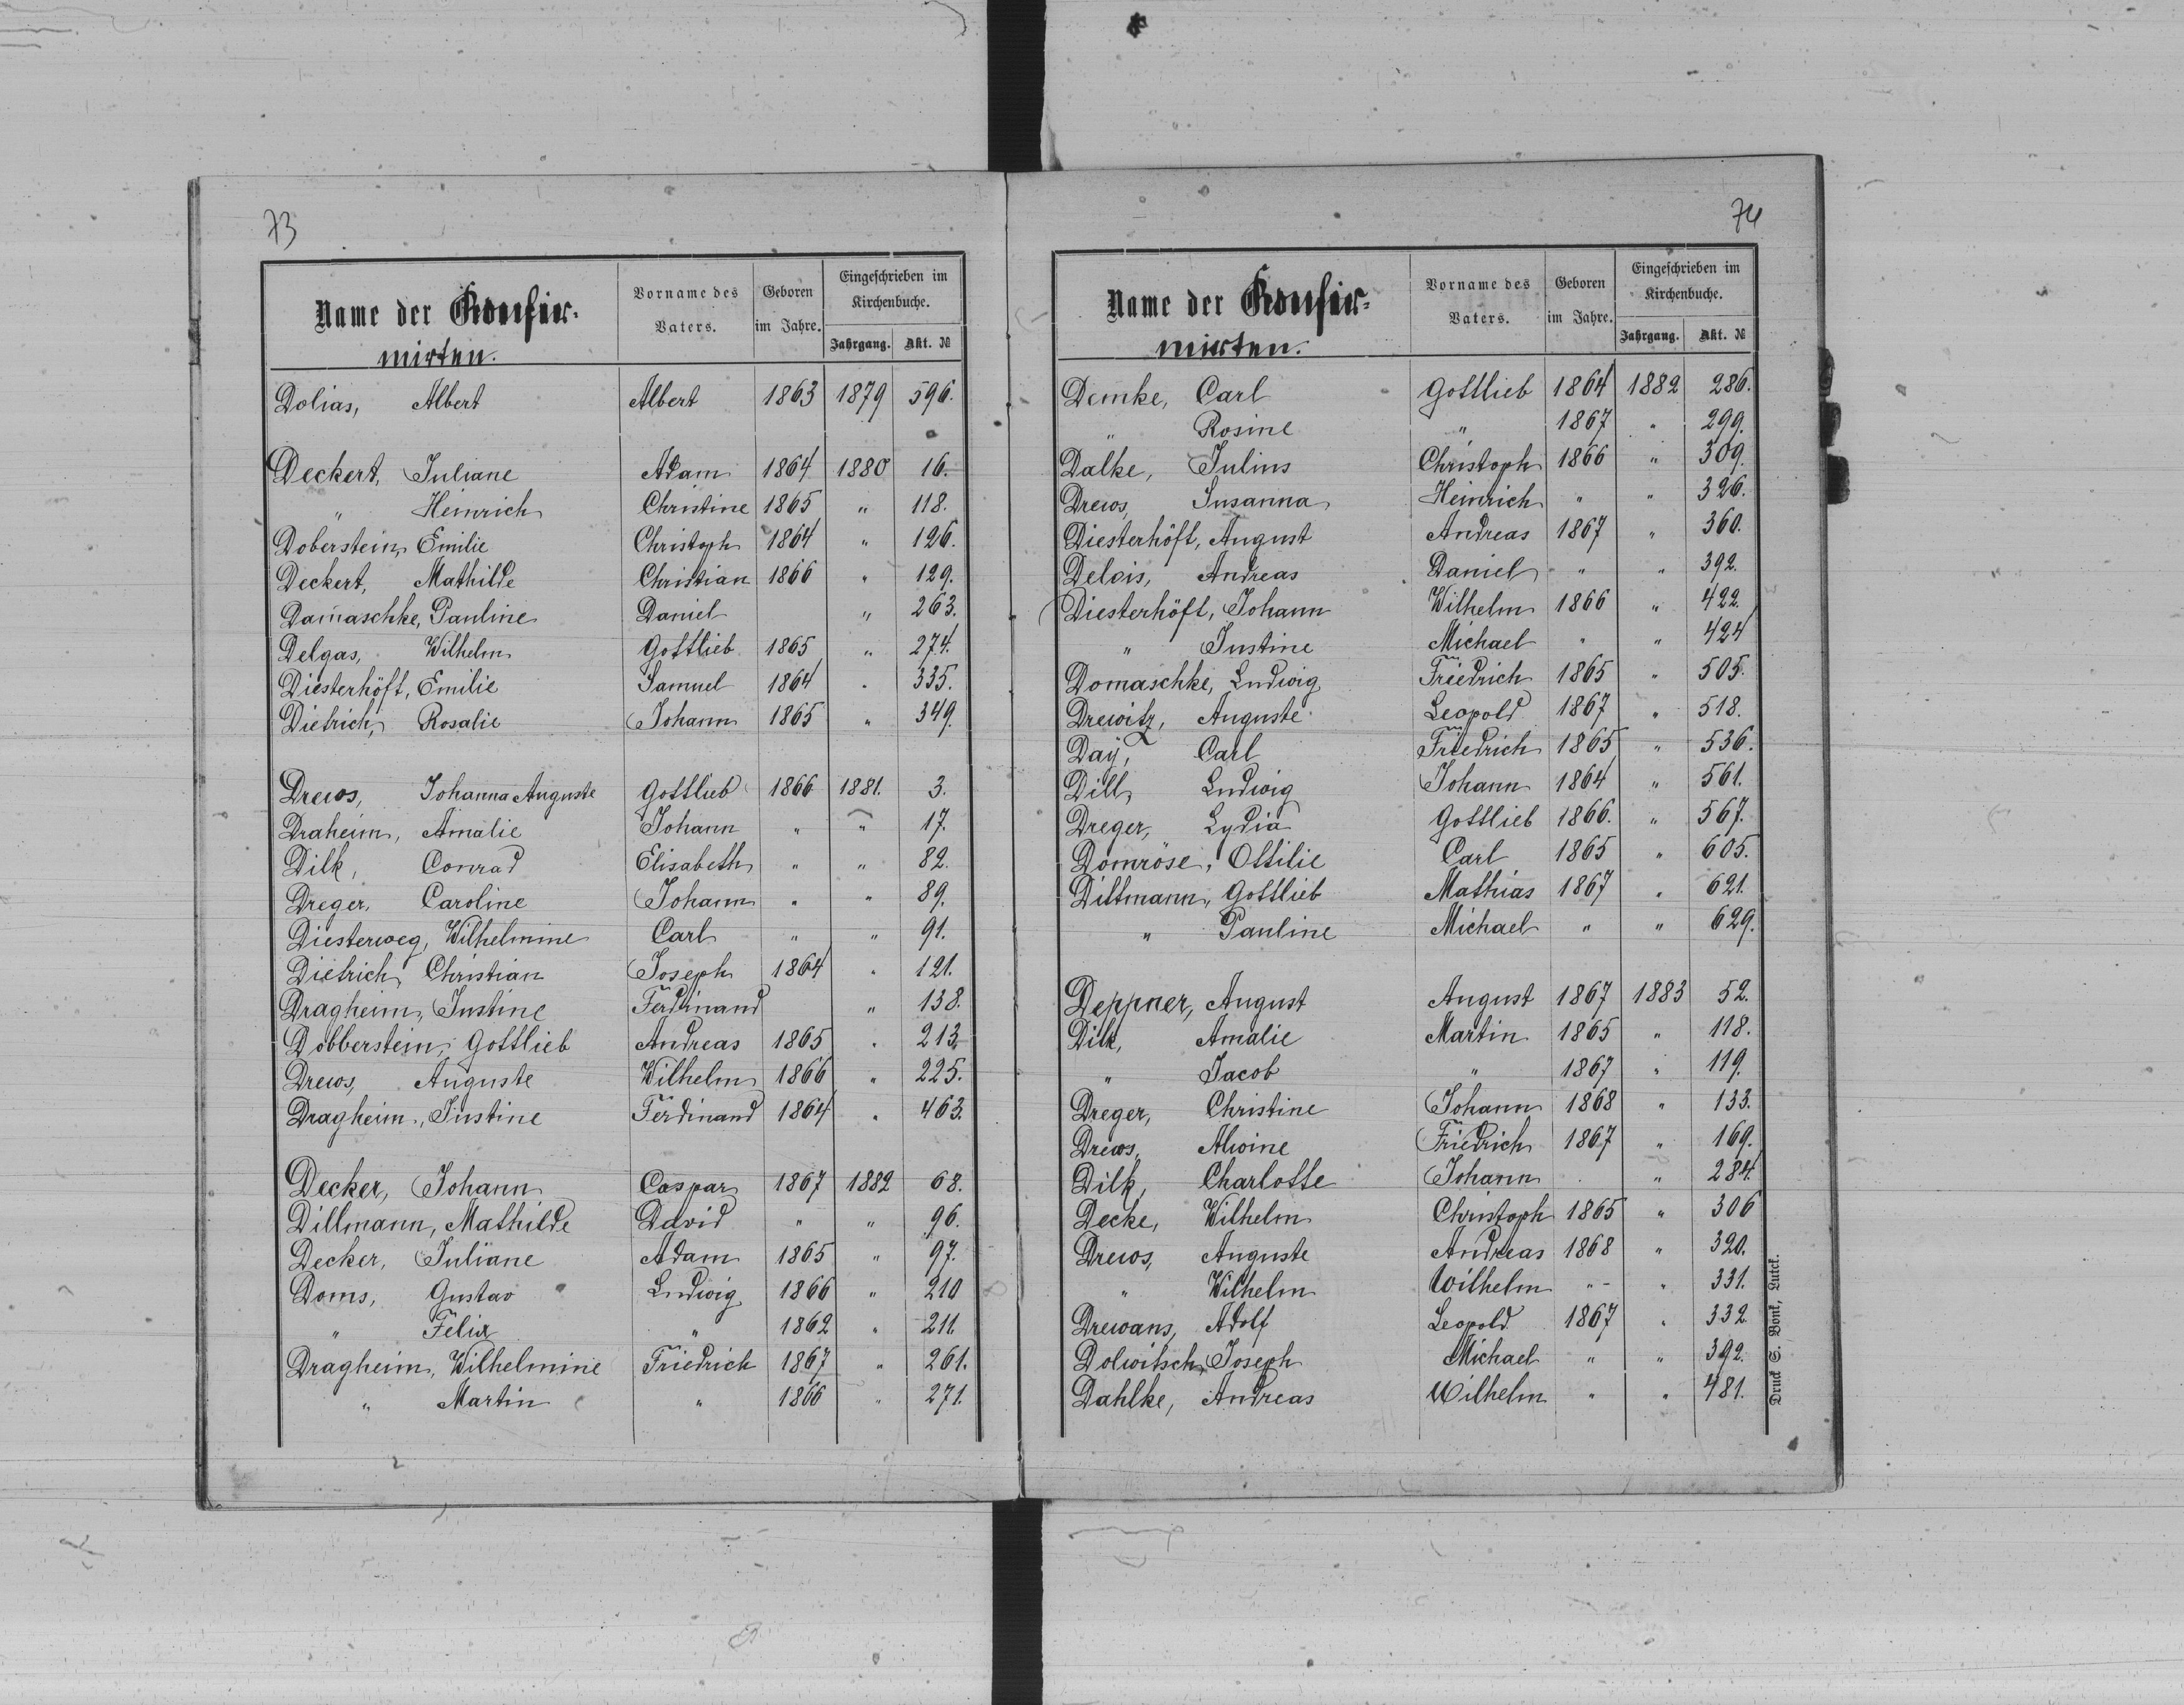 73
Name der Konfir-
mirten.
Vorname des Vaters.
Geboren im Jahre.
Eingeschrieben im Kirchenbuche.
Jahrgang. Akt. №
Dolias, Albert Albert 1863 1879 596.
Deckert, Juliane Adam 1864 1880 16.
" Heinrich Christine 1865 " 118.
Doberstein, Emilie Christoph 1864 " 126.
Deckert, Mathilde Christian 1866 " 129.
Damaschke, Pauline Daniel " 263.
Delgas, Wilhelm Gottlieb 1865 " 274.
Diesterhöft, Emilie Samuel 1864 " 335.
Dietrich, Rosalie Johann 1865 " 349.
Drews, Johanna Auguste Gottlieb 1866 1881. 3.
Draheim, Amalie Johann " " 17.
Dilk, Conrad Elisabeth " " 82.
Dreger, Caroline Johann " " 89.
Diesterweg, Wilhelmine Carl " " 91.
Dietrich, Christian Joseph 1864 " 121.
Dragheim, Justine Ferdinand " 138.
Dobberstein, Gottlieb Andreas 1865 " 213.
Drews, Auguste Wilhelm 1866 " 225.
Dragheim, Justine Ferdinand 1864 " 463.
Decker, Johann Caspar 1867 1882 68.
Dillmann, Mathilde David " " 96.
Decker, Juliane Adam 1865 " 97.
Doms, Gustav Ludwig 1866 " 210
" Felix " 1862 " 211.
Dragheim, Wilhelmine Friedrich 1867 " 261.
" Martin " 1866 " 271.
74
Name der Konfir-
mirten.
Vorname des Vaters.
Geboren im Jahre.
Eingeschrieben im Kirchenbuche.
Jahrgang. Akt. №
Demke, Carl Gottlieb 1864 1882 286.
" Rosine " 1867 " 299.
Dalke, Julius Christoph 1866 " 309.
Drews, Susanna Heinrich " " 326.
Diesterhöft, August Andreas 1867 " 360.
Delois, Andreas Daniel " " 392.
Diesterhöft, Johann Wilhelm 1866 " 422.
" Justine Michael " " 424
Domaschke, Ludwig Friedrich 1865 " 505.
Drewitz, Auguste Leopold 1867 " 518.
Daÿ, Carl Friedrich 1865 " 536.
Dill, Ludwig Johann 1864 " 561.
Dreger, Lydia Gottlieb 1866. " 567.
Domröse, Ottilie Carl 1865 " 605.
Dittmann, Gottlieb Mathias 1867 " 621.
" Pauline Michael " " 629.
Deppner, August August 1867 1883 52.
Dilk, Amalie Martin 1865 " 118.
" Jacob " 1867 " 119.
Dreger, Christine Johann 1868 " 133.
Drews, Alwine Friedrich 1867 " 169.
Dilk, Charlotte Johann " " 284.
Decke, Wilhelm Christoph 1865 " 306
Drews, Auguste Andreas 1868 " 320.
" Wilhelm Wilhelm " " 331.
Drewans, Adolf Leopold 1867 " 332.
Dolwitsch, Joseph Michael " " 392.
Dahlke, Andreas Wilhelm " " 481.
Druck S. Bonk, Lutck.